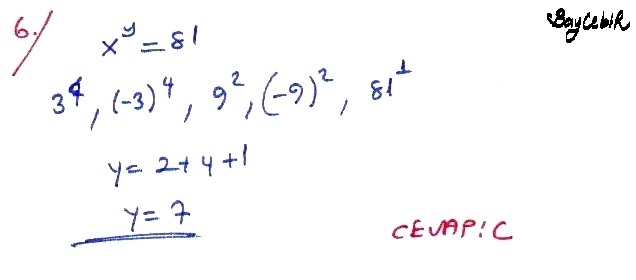 BayCebiR
6.) x^y = 81
3^4, (-3)^4, 9^2, (-9)^2, 81^1
y = 2+4+1
y = 7
CEVAP: C